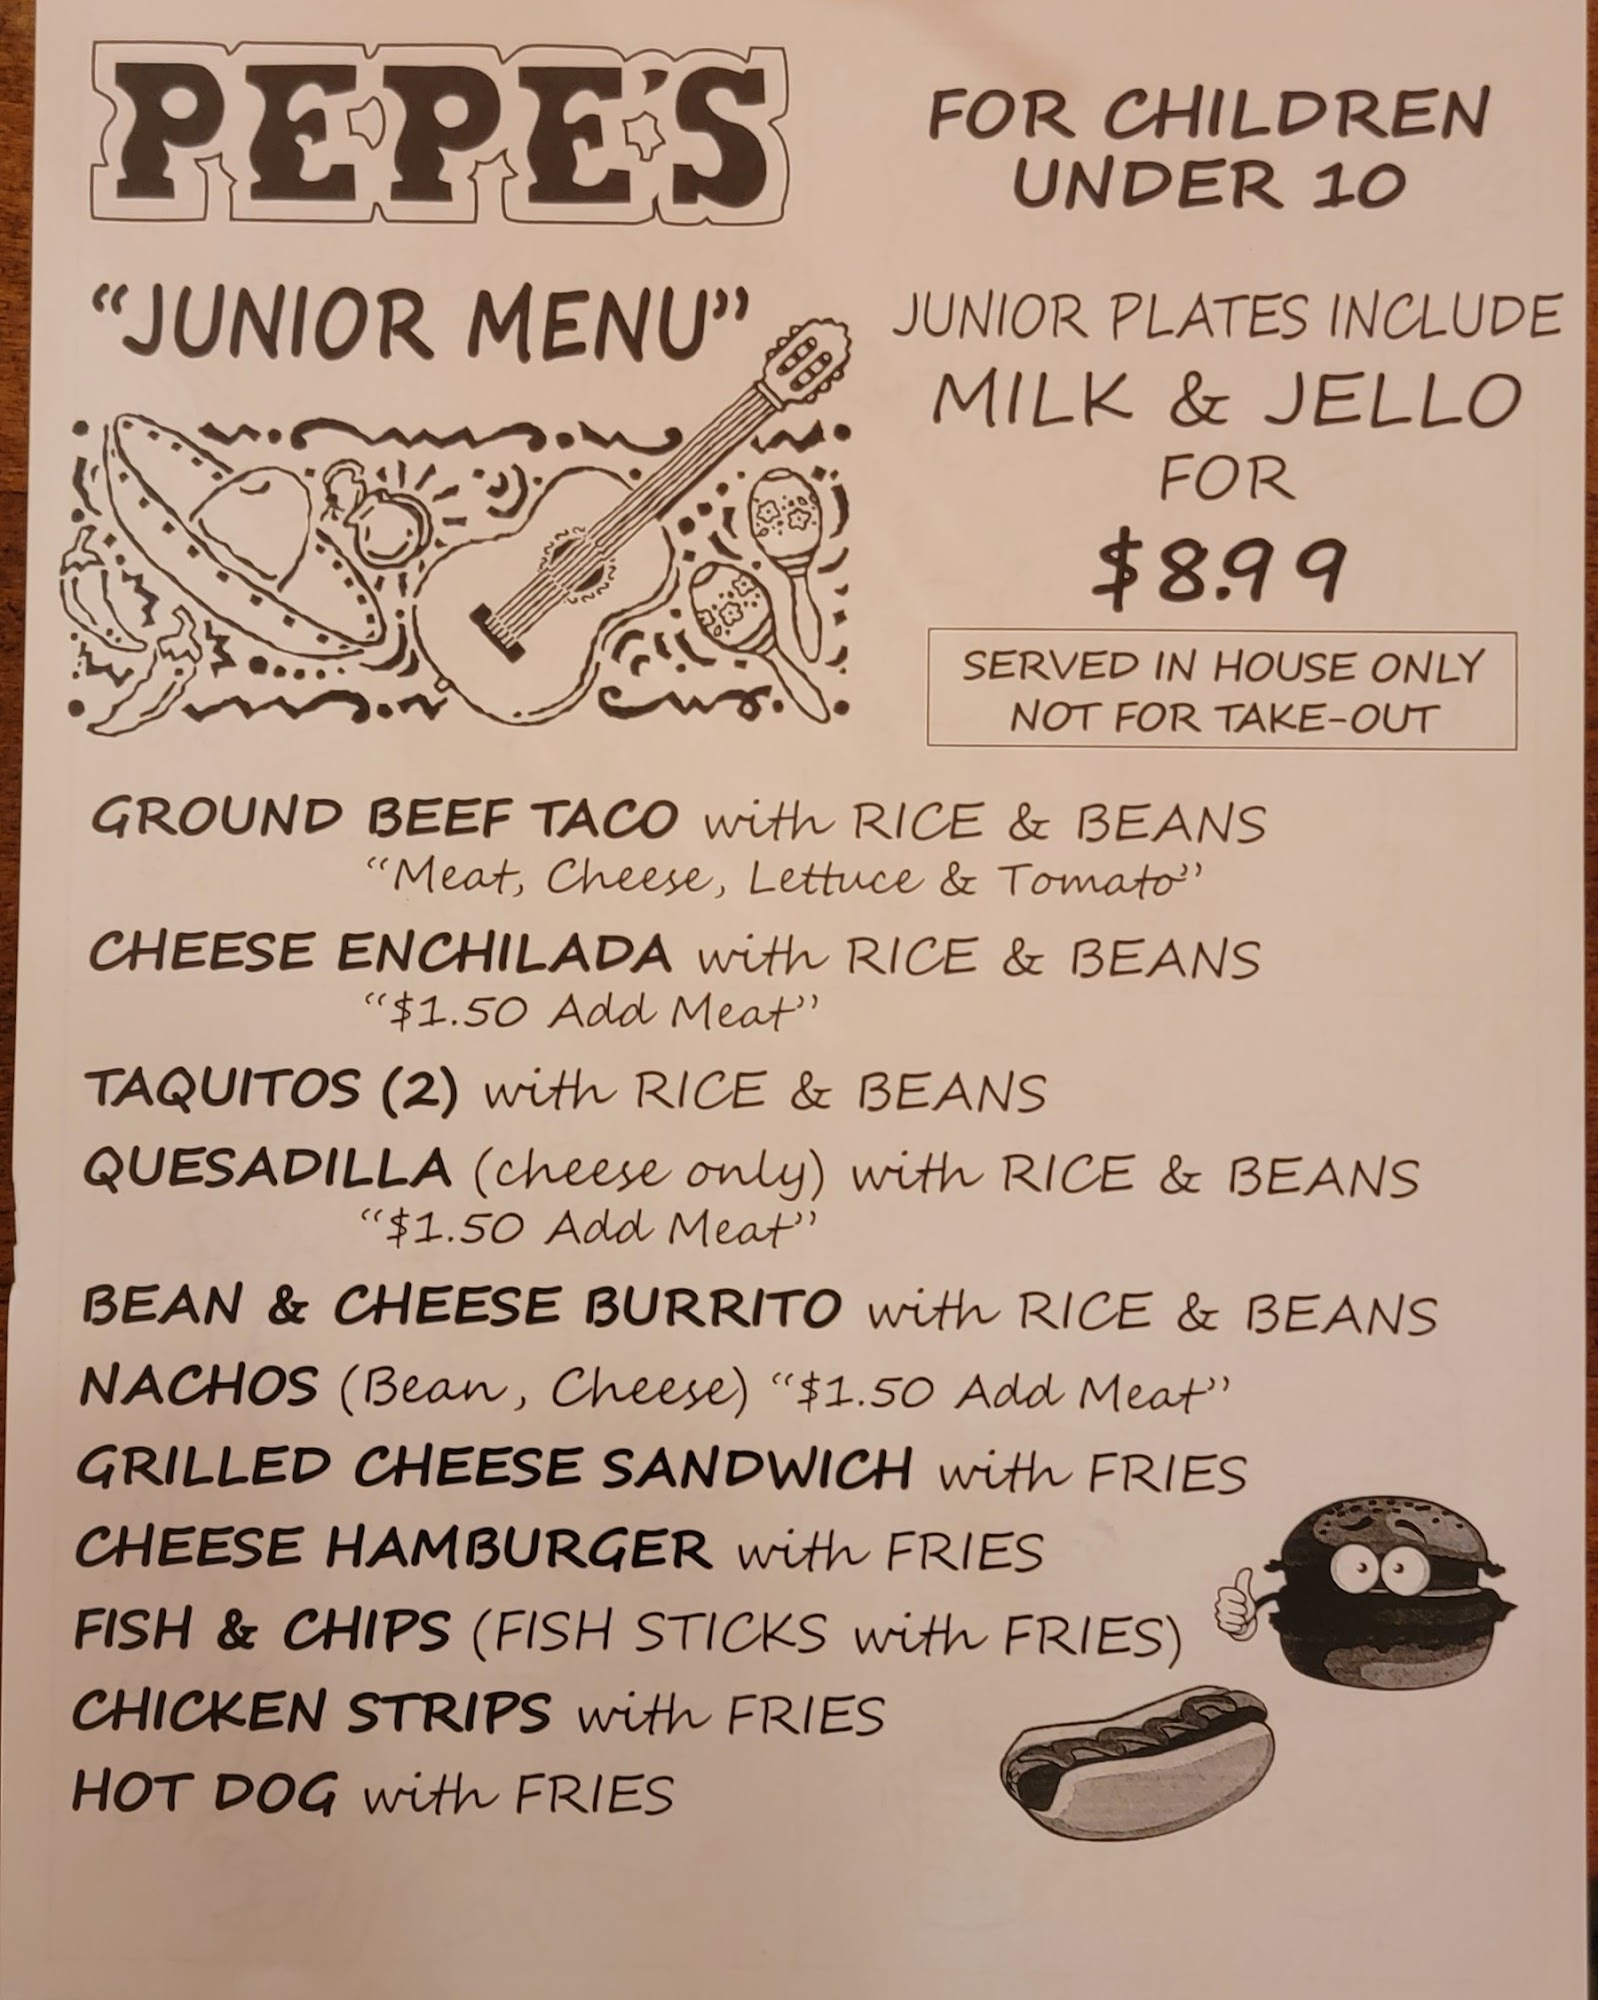 PEPE'S
"JUNIOR MENU"
FOR CHILDREN
UNDER 10
JUNIOR PLATES INCLUDE
MILK & JELLO
FOR
$8.99
SERVED IN HOUSE ONLY
NOT FOR TAKE-OUT
GROUND BEEF TACO with RICE & BEANS
"Meat, Cheese, Lettuce & Tomato"
CHEESE ENCHILADA with RICE & BEANS
"$1.50 Add Meat"
TAQUITOS (2) with RICE & BEANS
QUESADILLA (cheese only) with RICE & BEANS
"$1.50 Add Meat"
BEAN & CHEESE BURRITO with RICE & BEANS
NACHOS (Bean, Cheese) "$1.50 Add Meat"
GRILLED CHEESE SANDWICH with FRIES
CHEESE HAMBURGER with FRIES
FISH & CHIPS (FISH STICKS with FRIES)
CHICKEN STRIPS with FRIES
HOT DOG with FRIES